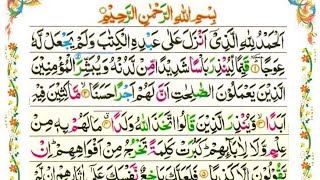 بِسْمِ اللهِ الرَّحْمٰنِ الرَّحِيْمِ
اَلْحَمْدُ لِلّٰهِ الَّذِیْۤ اَنْزَلَ عَلٰی عَبْدِهِ الْكِتٰبَ وَلَمْ یَجْعَلْ لَّهٗ
عِوَجًا ۜ۝۱ قَیِّمًا لِّیُنْذِرَ بَاْسًا شَدِیْدًا مِّنْ لَّدُنْهُ وَیُبَشِّرَ الْمُؤْمِنِیْنَ
الَّذِیْنَ یَعْمَلُوْنَ الصّٰلِحٰتِ اَنَّ لَهُمْ اَجْرًا حَسَنًا ۝۲ مَّاكِثِیْنَ فِیْهِ
اَبَدًا ۝۳ وَّیُنْذِرَ الَّذِیْنَ قَالُوا اتَّخَذَ اللهُ وَلَدًا ۝۴ مَا لَهُمْ بِهٖ مِنْ
عِلْمٍ وَّلَا لِاٰبَآىِٕهِمْ ؕ كَبُرَتْ كَلِمَةً تَخْرُجُ مِنْ اَفْوَاهِهِمْ ؕ اِنْ
یَّقُوْلُوْنَ اِلَّا كَذِبًا ۝۵ فَلَعَلَّكَ بَاخِعٌ نَّفْسَكَ عَلٰۤی اٰثَارِهِمْ اِنْ لَّمْ